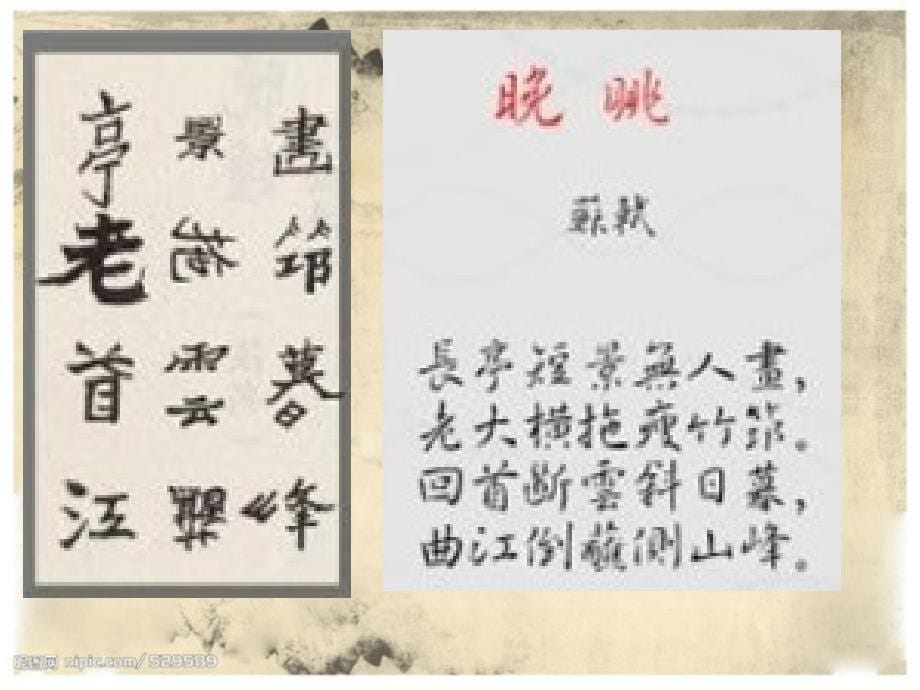 亭 景 畫
老 拖 筇
首 雲 暮
江 蘸 峰
晚 眺
蘇軾
長亭短景無人畫，
老大橫拖瘦竹筇。
回首斷雲斜日暮，
曲江倒蘸側山峰。
昵图网 nipic.com/529589